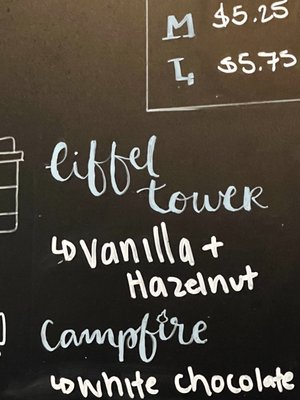 M $5.25
L $5.75
Eiffel
tower
↳Vanilla +
Hazelnut
Campfire
↳White chocolate